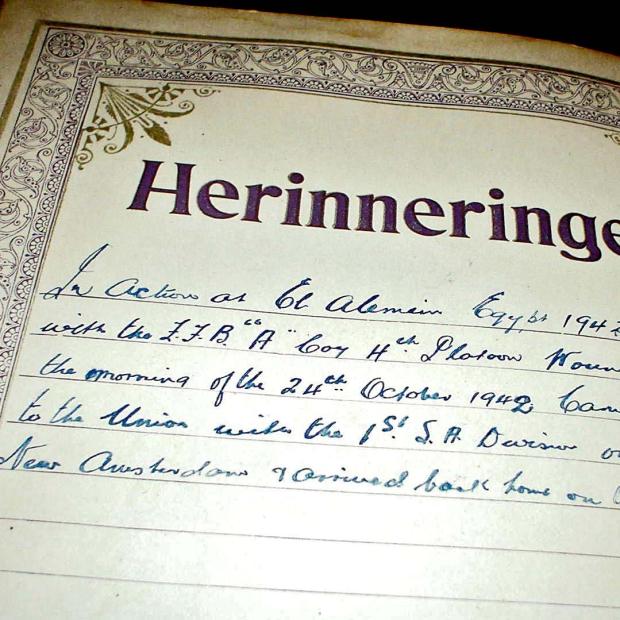 Herinneringe
In action at El Alemein Egypt 194
with the F.F.B. "A" Coy 4th Platoon Woun
the morning of the 24th October 1942 Cam
to the Union with the 1st S.A. Devision o
New Amsterdam & arrived back home on